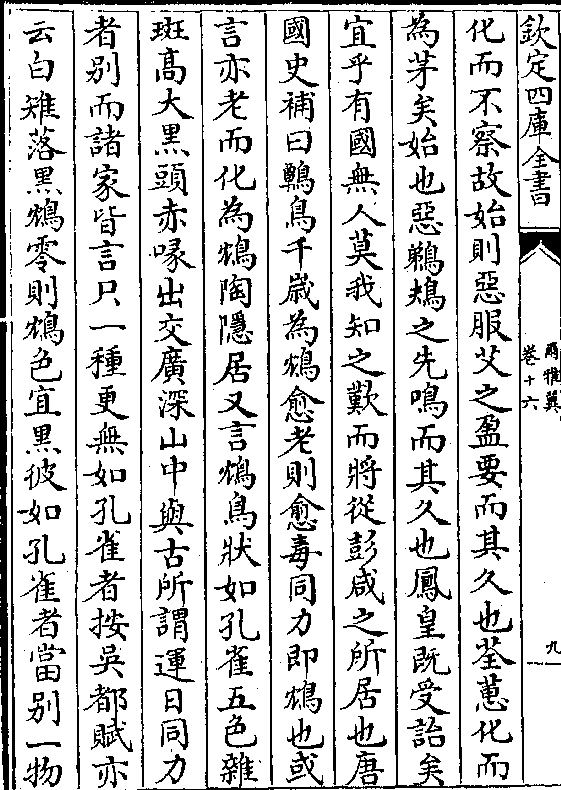 欽定四庫全書
爾雅翼
卷十六
九
化而不察故始則惡服艾之盈要而其久也荃蕙化而
為茅矣始也惡鵜鴂之先鳴而其久也鳳皇既受詒矣
宜乎有國無人莫我知之歎而將從彭咸之所居也唐
國史補曰鷣鳥千嵗為鴆愈老則愈毒同力即鴆也或
言亦老而化為鴆陶隱居又言鴆鳥狀如孔雀五色雜
斑高大黒頭赤喙出交廣深山中與古所謂運日同力
者别而諸家皆言只一種更無如孔雀者按吳都賦亦
云白雉落黒鴆零則鴆色宜黒彼如孔雀者當别一物